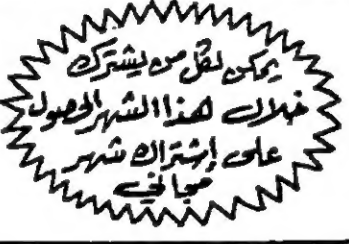 يمكن لكل من يشترك
خلال هذا الشهر الحصول
على إشتراك شهر
مجاني